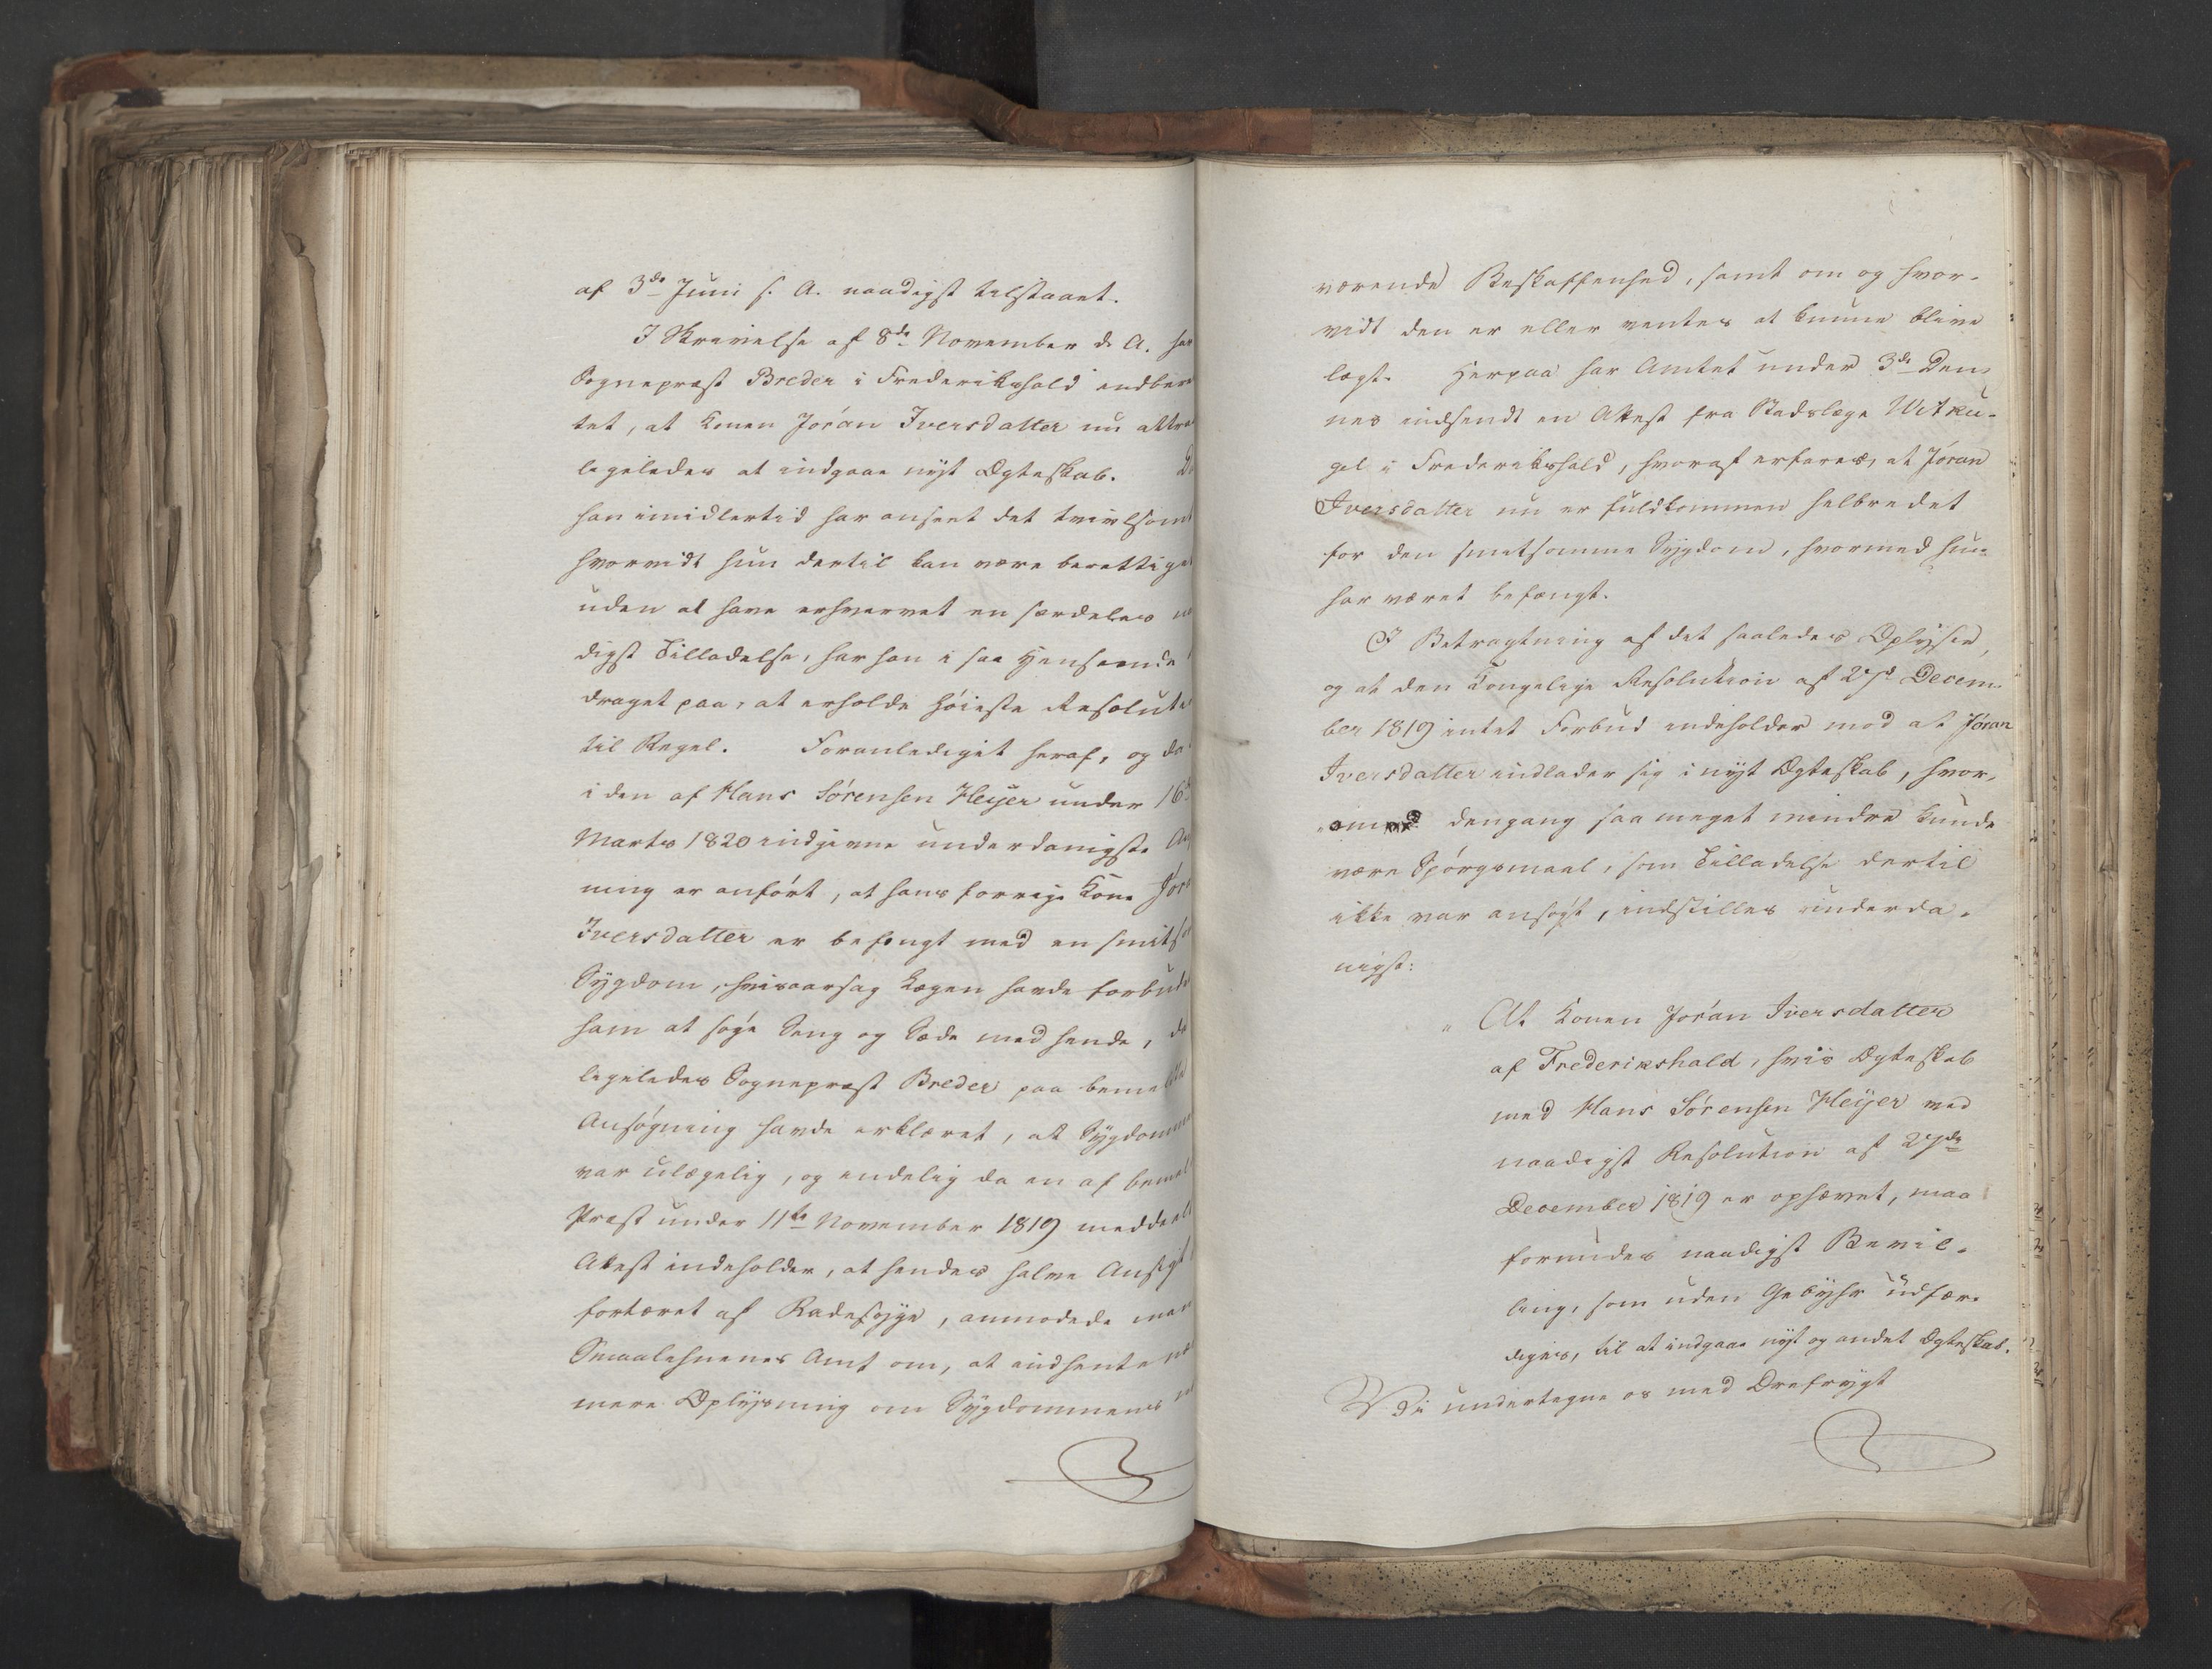 af 3de Juni s. A. naadigst tilstaaet.
I Skrivelse af 8de November d. A. har
Sognepræst Breder i Frederikshald indberet
tet, at Konen Jóran Iversdatter nu attraaer
ligeledes at indgaae nyt Ægteskab. Da
han imidlertid har anseet det tvivlsomt
hvorvidt hun dertil kan være berettiget
uden at have erhvervet en særdeles naa
digst Tilladelse, har han i saa Henseende
draget paa, at erholde høieste Resolution
til Regel. Foranlediget heraf, og da
i den af Hans Sørensen Heijer under 16de
Marts 1820 indgivne underdanigste An
ning er anført, at hans forrige Kone Jór
Iversdatter er befengt med en smitso
Sygdom, hvisaarsag Lægen havde forbudet
ham at søge Seng og Sæde med hende, da
ligeledes Sognepræst Breder paa bemeldte
Ansøgning havde erklæret, at Sygdommen
var ulægelig, og endelig da en af bemeldte
Præst under 11te November 1819 meddeelt
Attest indeholder, at hendes halve Ansigt
fortæret af Radesyge, anmodede man
Smaalehnenes Amt om, at indhente nær
mere Oplysning om Sygdommens nu
værende Beskaffenhed, samt om og hvor-
vidt den er eller ventes at kunne blive
lægt. Herpaa har Amtet under 3de Den-
nes indsendt en Attest fra Stadslæge Witku-
gel i Frederikshald, hvoraf erfares, at Jóran
Iversdatter nu er fuldkommen helbredet
for den smitsomme Sygdom, hvormed hun
har været befængt.
I Betragtning af det saaledes Oplyste,
og at den Kongelige Resolution af 27de Decem-
ber 1819 intet Forbud indeholder mod at Jóran
Iversdatter indlader sig i nyt Ægteskab, hvor-
om dengang saa meget mindre kunde
være Spørgsmaal, som Tilladelse dertil
ikke var ansøgt, indstilles underda-
nigst:
" At Konen Jóran Iversdatter
af Frederikshald, hvis Ægteskab
med Hans Sørensen Heijer ved
naadigst Resolution af 27de
December 1819 er ophævet, maa
forundes naadigst Bevil-
ling, som uden Gebyhr udfær-
diges, til at indgaae nyt og andet Ægteskab.
Vi undertegne os med Ærefrygt